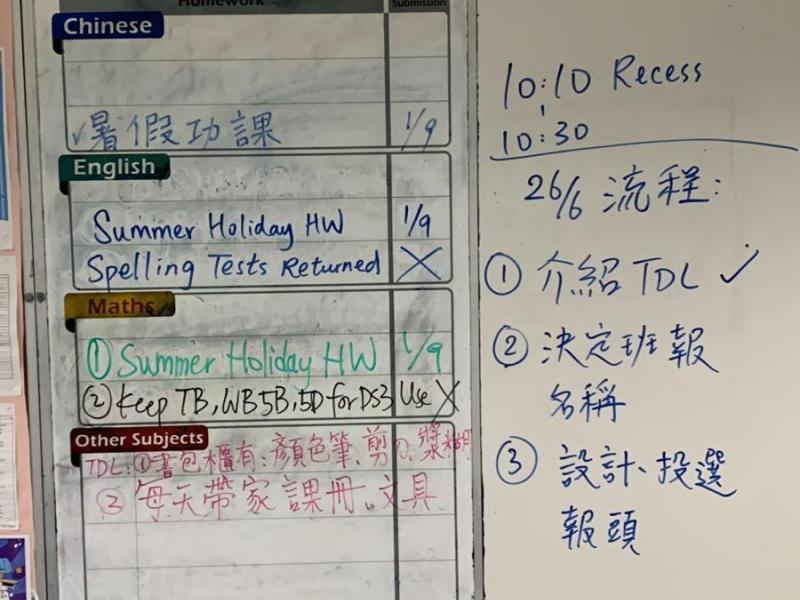 Homework
Submission
Chinese
✓暑假功課 1/9
English
Summer Holiday HW 1/9
Spelling Tests Returned ╳
Maths
① Summer Holiday HW 1/9
② Keep TB, WB 5B, 5D for DS3 Use ╳
Other Subjects
TDL: ①書包櫃有:顏色筆、剪刀、漿糊
② 每天帶家課冊、文具
10:10 Recess
10:30
26/6 流程:
① 介紹 TDL ✓
② 決定班報
名稱
③ 設計、投選
報頭